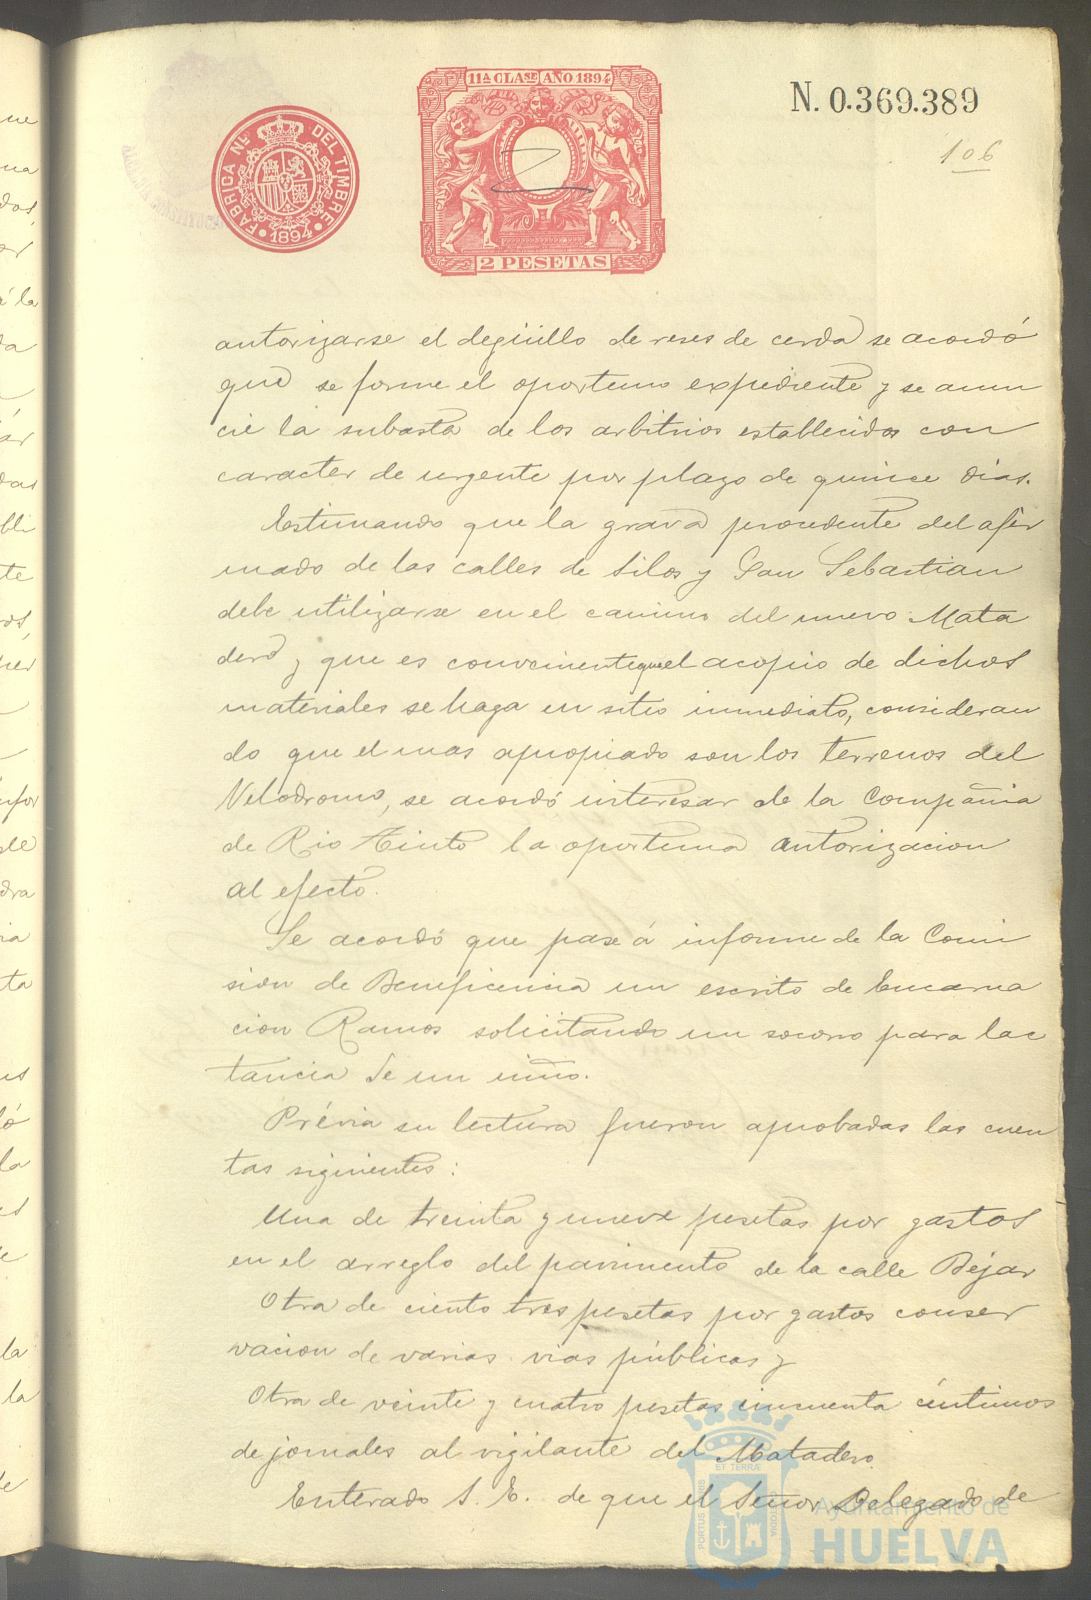 11ª CLASE AÑO 1894
N. 0.369.389
106
FABRICA Nal DEL TIMBRE
1894
2 PESETAS
autorizarse el degüello de reses de cerda se acordó
que se forme el oportuno expediente y se anun
cie la subasta de los arbitrios establecidos con
caracter de urgente por plazo de quince dias.
Estimando que la grava procedente del afir
mado de las calles de Silos y San Sebastian
debe utilizarse en el camino del nuevo Mata
dero y que es conveniente que el acopio de dichos
materiales se haga en sitio inmediato, consideran
do que el mas apropiado son los terrenos del
Velodromo, se acordó interesar de la Compañia
de Rio Tinto la oportuna autorizacion
al efecto.
Se acordó que pase á informe de la Comi
sion de Beneficencia un escrito de Encarna
cion Ramos solicitando un socorro para lac
tancia de un niño.
Prévia su lectura fueron aprobadas las cuen
tas siguientes:
Una de treinta y nueve pesetas por gastos
en el arreglo del pavimento de la calle Béjar
Otra de ciento tres pesetas por gastos conser
vacion de varias vias públicas y
Otra de veinte y cuatro pesetas cincuenta céntimos
de jornales al vigilante del Matadero.
Enterado S. E. de que el Señor Delegado de
Ayuntamiento de
HUELVA